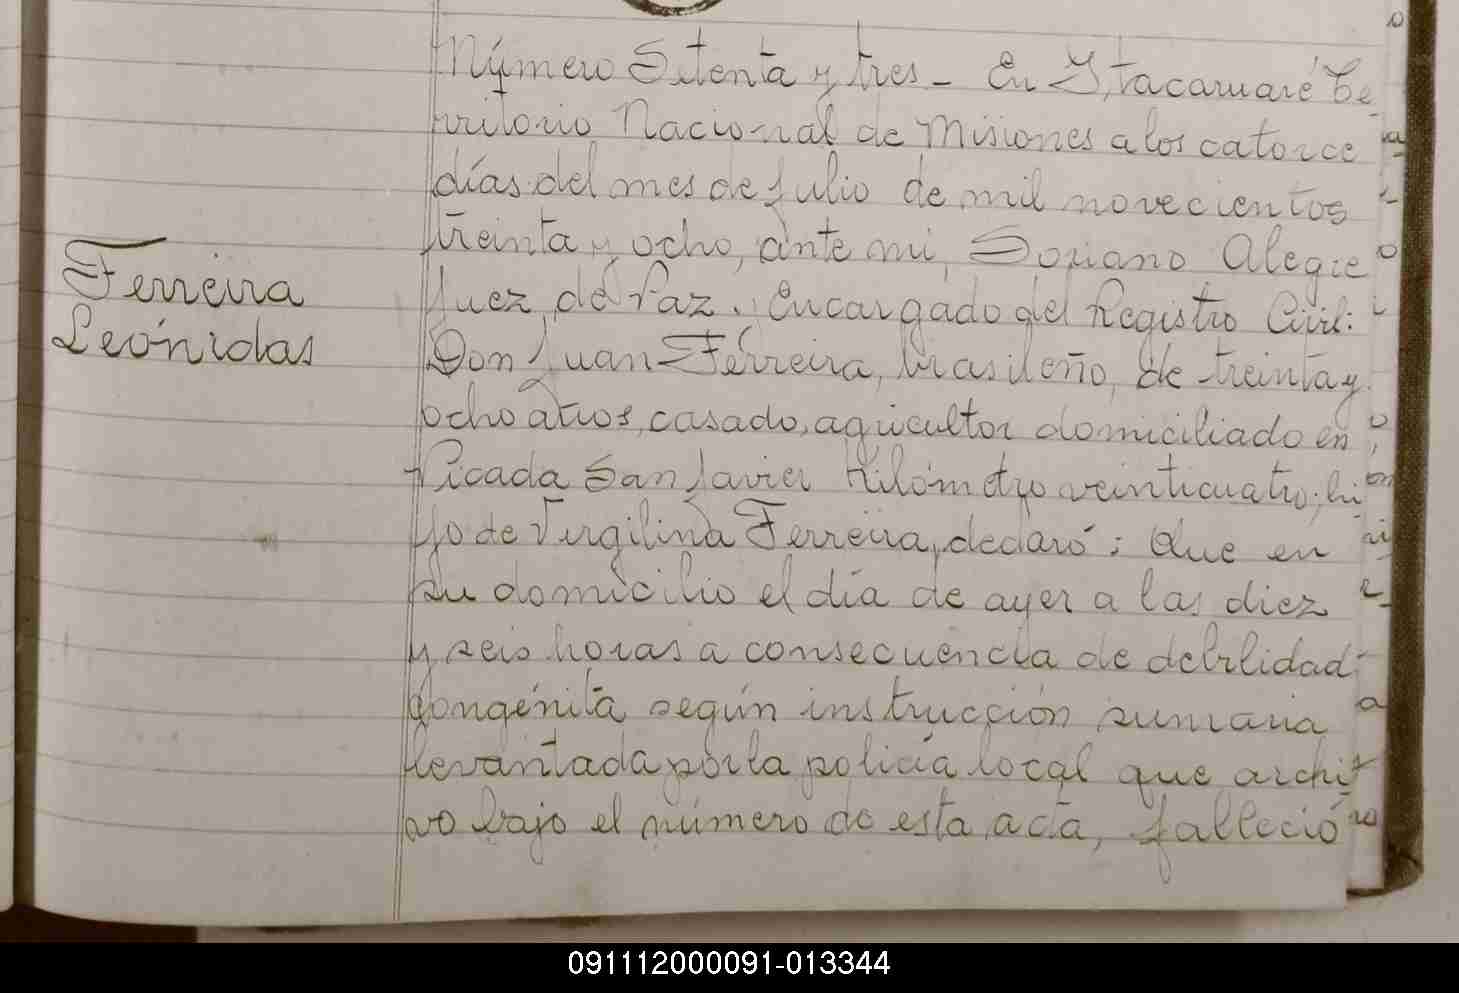 Número Setenta y tres - En Itacaruaré Te-
rritorio Nacional de Misiones a los catorce
días del mes de julio de mil novecientos
treinta y ocho, ante mi, Soriano Alegre
Juez de Paz. Encargado del Registro Civil:
Don Juan Ferreira, brasileño, de treinta y
ocho años, casado, agricultor domiciliado en
Picada San Javier Kilómetro veinticuatro, hi-
jo de Virgilina Ferreira, declaró: Que en
su domicilio el día de ayer a las diez
y seis horas a consecuencia de debilidad
congénita según instrucción sumaria
levantada por la policía local que archi-
vo bajo el número de esta acta, falleció
Ferreira
Leónidas
091112000091-013344